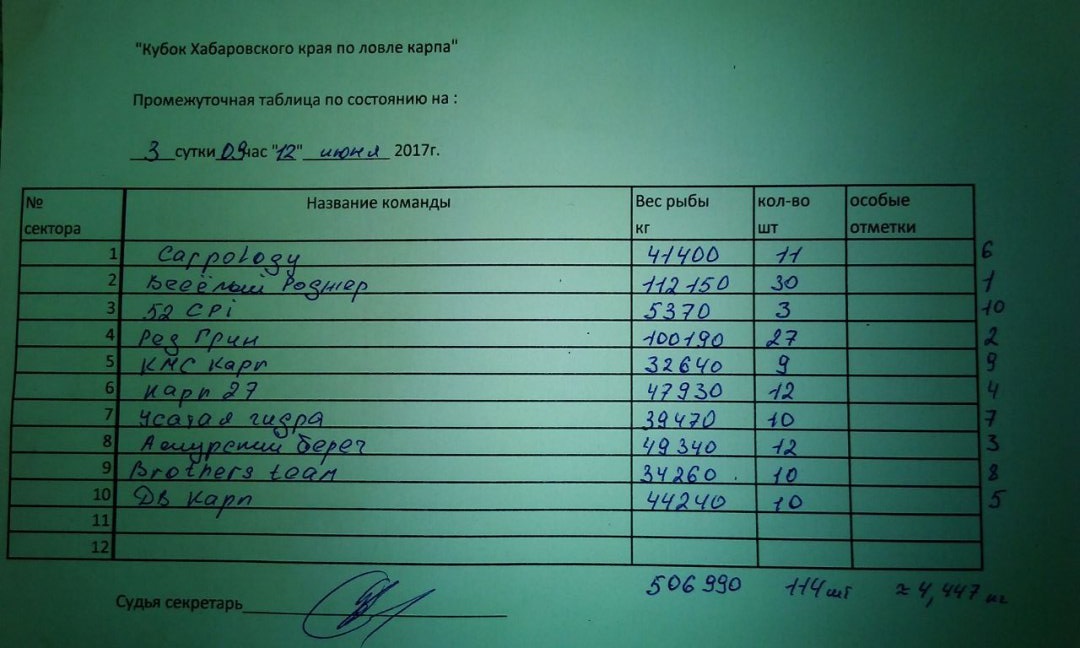 "Кубок Хабаровского края по ловле карпа"
Промежуточная таблица по состоянию на :
3 сутки 09 час "12" июня 2017г.
№ сектора Название команды Вес рыбы кг кол-во шт особые отметки
1 Carpology 41400 11 6
2 Весёлый Роджер 112150 30 1
3 52 CPi 5370 3 10
4 Ред Грин 100190 27 2
5 КМС Карп 32640 9 9
6 Карп 27 47930 12 4
7 Усатая гидра 39470 10 7
8 Амурский берег 49340 12 3
9 Brothers team 34260 10 8
10 ДВ Карп 44240 10 5
11
12
506990 114 шт ≈ 4,447 кг
Судья секретарь